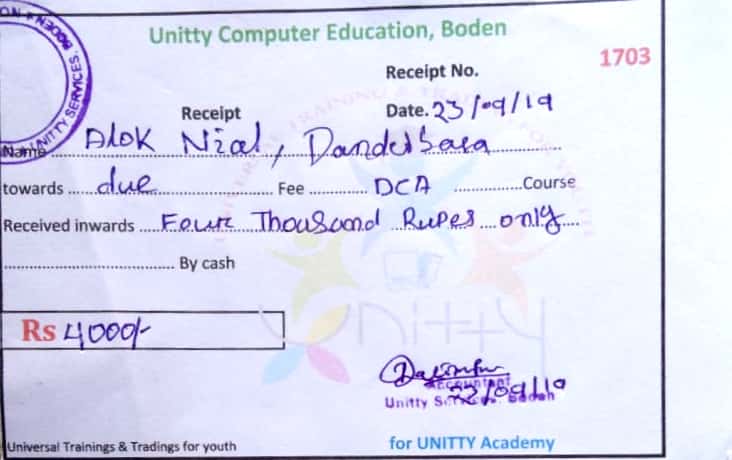 Unitty Computer Education, Boden
Receipt No. 1703
Receipt Date. 23/09/19
Name Alok Nial, Danderbasa
towards due Fee DCA Course
Received inwards Four Thousand Rupes only
By cash
Rs 4000/-
Accountant
Unitty Services, Boden
23/09/19
Universal Trainings & Tradings for youth for UNITTY Academy
UNITTY SERVICES. BODEN
UNIVERSAL TRAINING & TRADING FOR YOUTH
Unitty